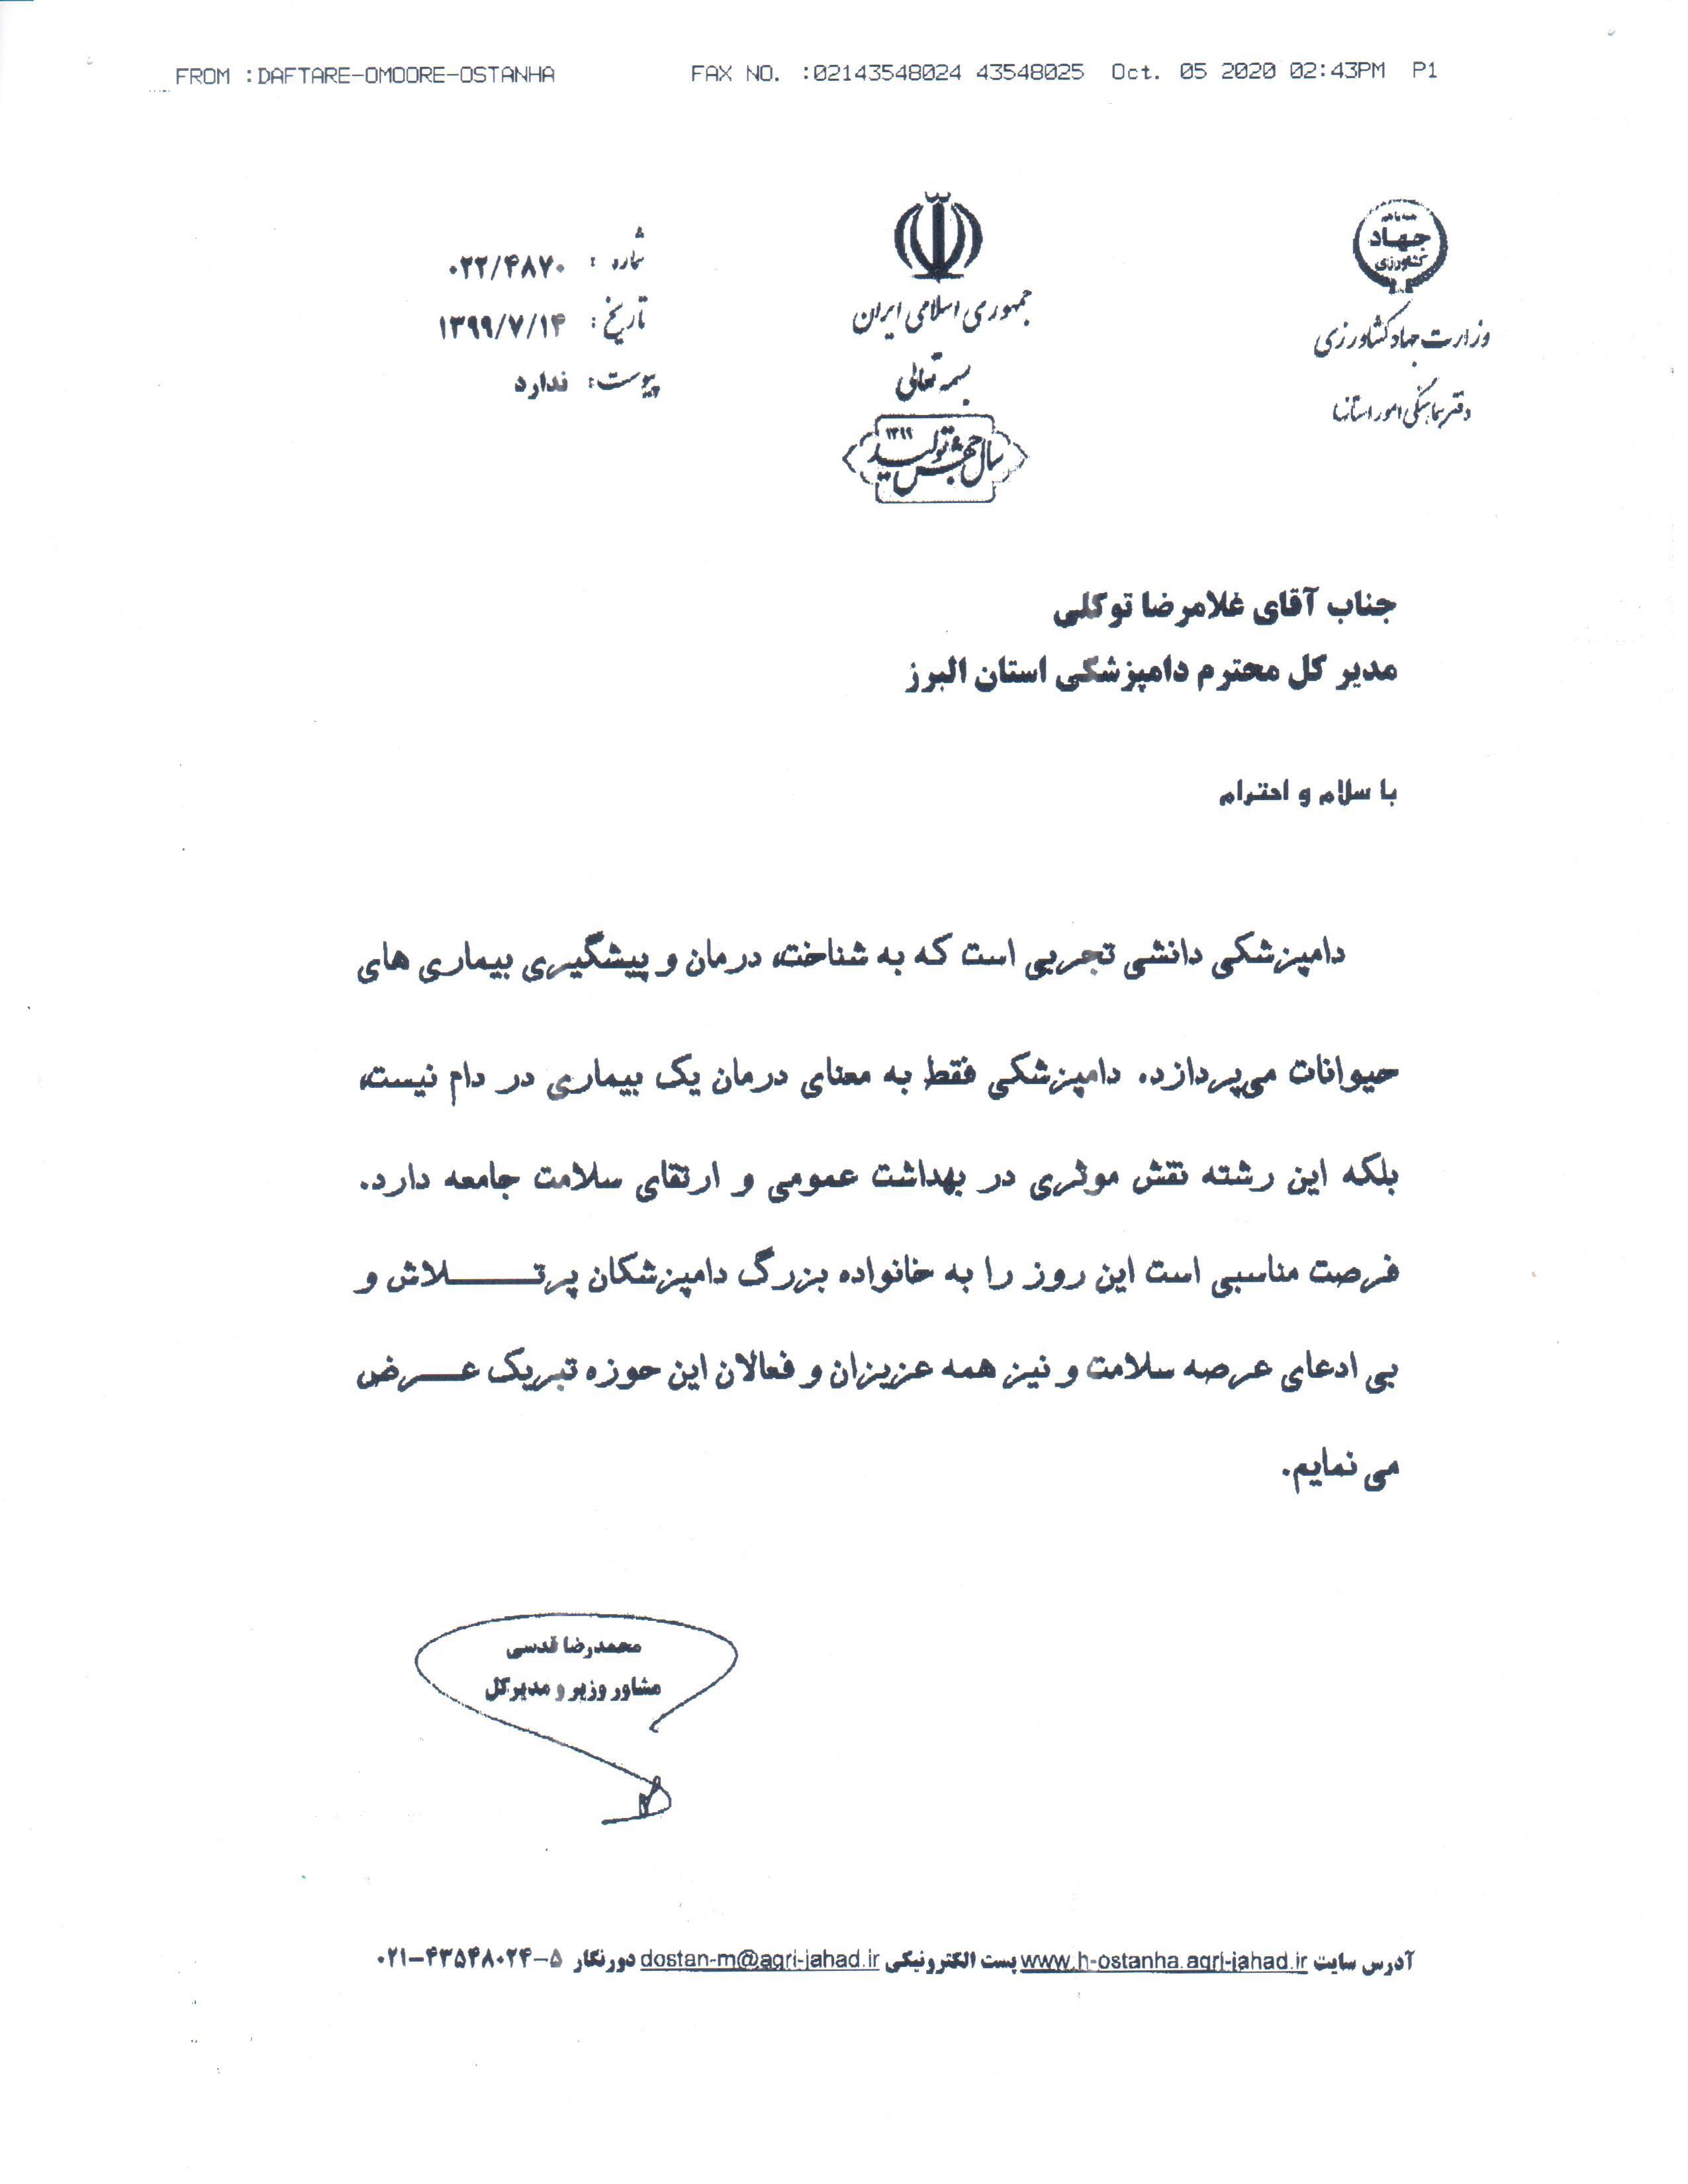 FROM :DAFTARE-OMOORE-OSTANHA FAX NO. :02143548024 43548025 Oct. 05 2020 02:43PM P1
همه با هم
جهاد
کشاورزی
وزارت جهاد کشاورزی
دفتر هماهنگی امور استانها
جمهوری اسلامی ایران
بسمه تعالی
سال جهش تولید
۱۳۹۹
شماره : ۰۲۲/۴۸۷۰
تاریخ: ۱۳۹۹/۷/۱۴
پیوست: ندارد
جناب آقای غلامرضا توکلی
مدیر کل محترم دامپزشکی استان البرز
با سلام و احترام
دامپزشکی دانشی تجربی است که به شناخت، درمان و پیشگیری بیماری های
حیوانات می‌پردازد. دامپزشکی فقط به معنای درمان یک بیماری در دام نیست،
بلکه این رشته نقش موثری در بهداشت عمومی و ارتقای سلامت جامعه دارد.
فرصت مناسبی است این روز را به خانواده بزرگ دامپزشکان پرتـــــــلاش و
بی ادعای عرصه سلامت و نیز همه عزیزان و فعالان این حوزه تبریک عـــرض
می نمایم.
محمدرضا قدسی
مشاور وزیر و مدیرکل
آدرس سایت www.h-ostanha.agri-jahad.ir پست الکترونیکی dostan-m@agri-jahad.ir دورنگار ۵-۰۲۱-۴۳۵۴۸۰۲۴